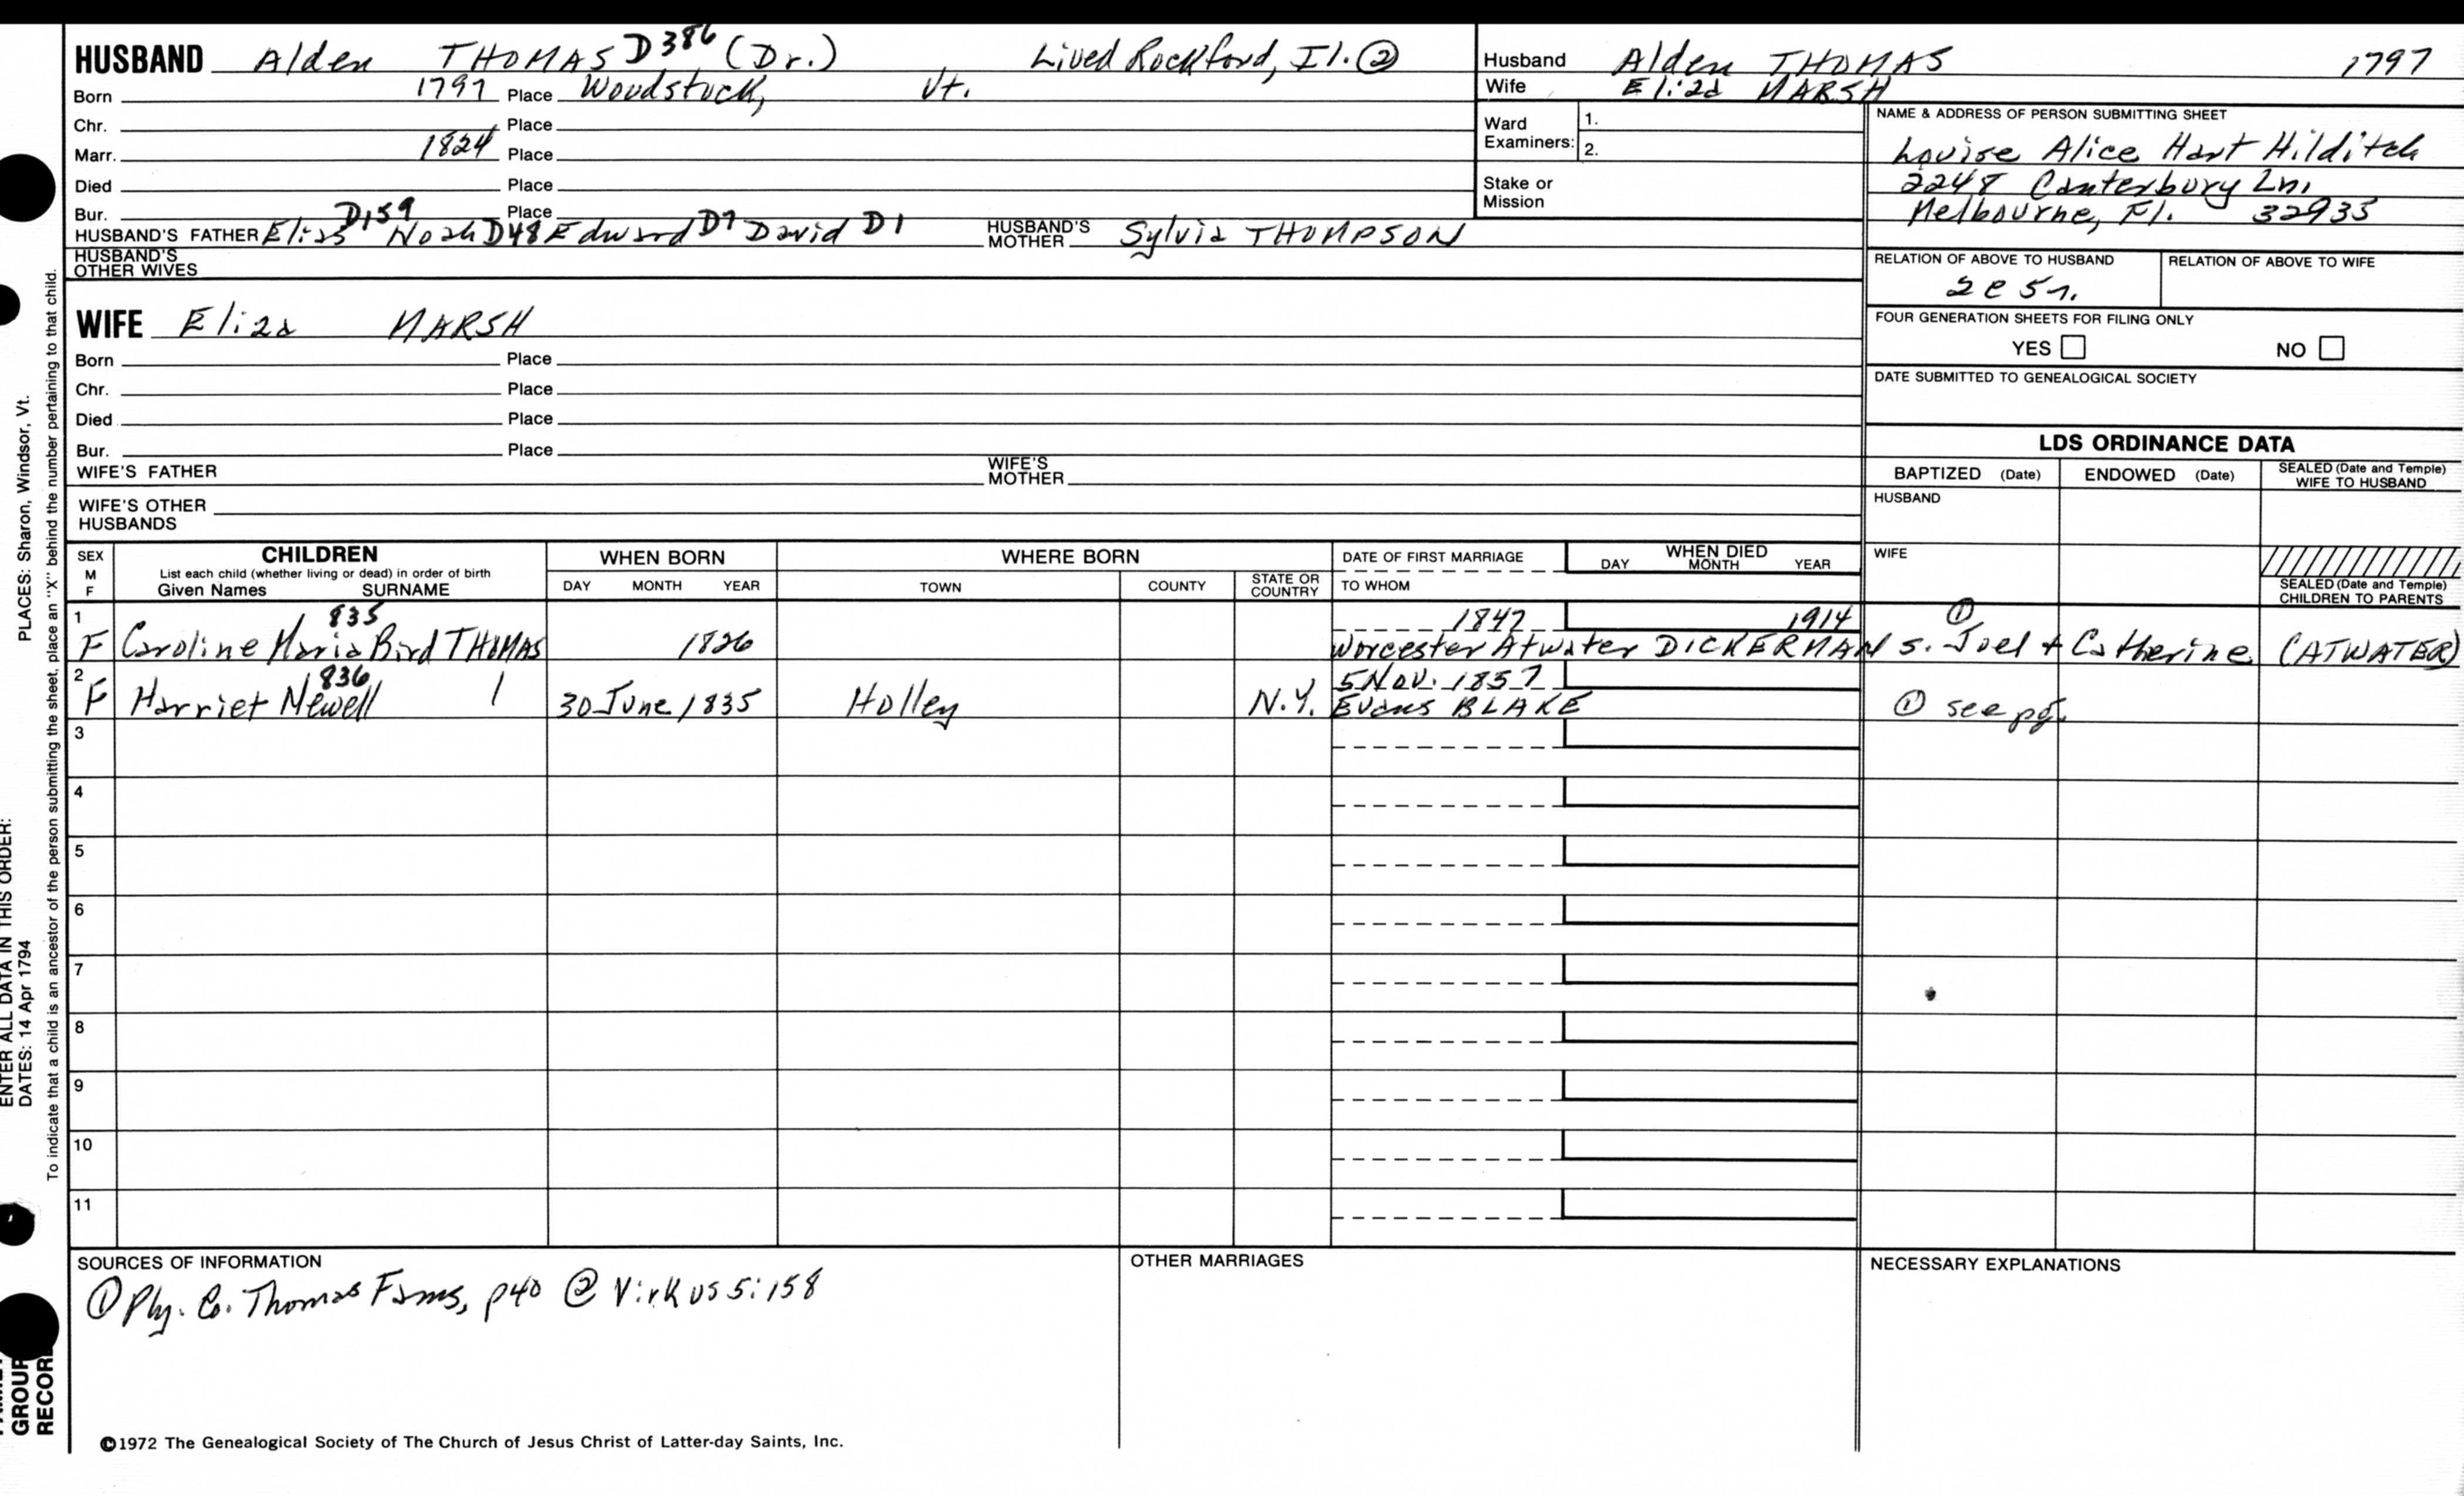 HUSBAND Alden THOMAS D386 (Dr.) Lived Rockford, Il. ②
Born 1797 Place Woodstock, Vt.
Chr. Place
Marr. 1824 Place
Died Place
Bur. Place
HUSBAND'S FATHER Elias D159 Noah D48 Edward D7 David D1 HUSBAND'S MOTHER Sylvia THOMPSON
HUSBAND'S OTHER WIVES
Husband Alden THOMAS 1797
Wife Eliza MARSH
Ward Examiners: 1.
2.
Stake or Mission
NAME & ADDRESS OF PERSON SUBMITTING SHEET
Louise Alice Hart Hilditch
2248 Canterbury Ln.
Melbourne, Fl. 32935
RELATION OF ABOVE TO HUSBAND RELATION OF ABOVE TO WIFE
FOUR GENERATION SHEETS FOR FILING ONLY
YES NO
DATE SUBMITTED TO GENEALOGICAL SOCIETY
WIFE Eliza MARSH
Born Place
Chr. Place
Died Place
Bur. Place
WIFE'S FATHER WIFE'S MOTHER
WIFE'S OTHER HUSBANDS
LDS ORDINANCE DATA
BAPTIZED (Date) ENDOWED (Date) SEALED (Date and Temple) WIFE TO HUSBAND
HUSBAND
WIFE
SEALED (Date and Temple) CHILDREN TO PARENTS
SEX M F
CHILDREN
List each child (whether living or dead) in order of birth
Given Names SURNAME
WHEN BORN
DAY MONTH YEAR
WHERE BORN
TOWN COUNTY STATE OR COUNTRY
DATE OF FIRST MARRIAGE
TO WHOM
WHEN DIED
DAY MONTH YEAR
1 835 1847 1914 ①
F Caroline Maria Bird THOMAS 1826 Worcester Atwater DICKERMAN s. Joel + Catherine (ATWATER)
2 836 5 Nov. 1857
F Harriet Newell 1 30 June 1835 Holley N.Y. Evans BLAKE ① see pg.
3
4
5
6
7
8
9
10
11
SOURCES OF INFORMATION
① Ply. Co. Thomas Fams, p40 ② Virkus 5:158
OTHER MARRIAGES
NECESSARY EXPLANATIONS
©1972 The Genealogical Society of The Church of Jesus Christ of Latter-day Saints, Inc.
ENTER ALL DATA IN THIS ORDER:
DATES: 14 Apr 1794 PLACES: Sharon, Windsor, Vt.
To indicate that a child is an ancestor of the person submitting the sheet, place an "X" behind the number pertaining to that child.
GROUP
RECORD